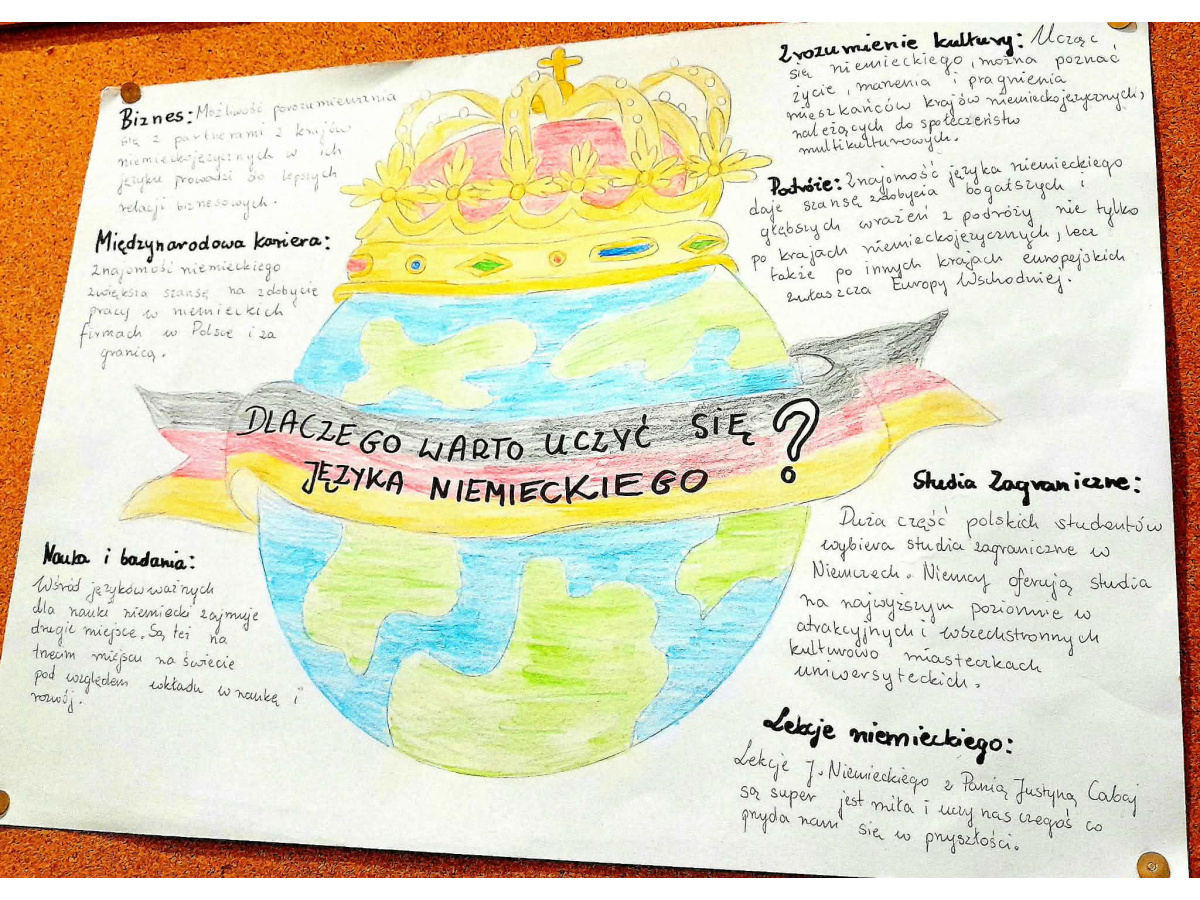 Biznes: Możliwość porozumiewania
się z partnerami z krajów
niemieckojęzycznych w ich
języku prowadzi do lepszych
relacji biznesowych.
Międzynarodowa kariera:
Znajomość niemieckiego
zwiększa szansę na zdobycie
pracy w niemieckich
firmach w Polsce i za
granicą.
Zrozumienie kultury: Ucząc
się niemieckiego, można poznać
życie, marzenia i pragnienia
mieszkańców krajów niemieckojęzycznych,
należących do społeczeństw
multikulturowych.
Podróże: Znajomość języka niemieckiego
daje szansę zdobycia bogatszych i
głębszych wrażeń z podróży nie tylko
po krajach niemieckojęzycznych, lecz
także po innych krajach europejskich
zwłaszcza Europy Wschodniej.
DLACZEGO WARTO UCZYĆ SIĘ ?
JĘZYKA NIEMIECKIEGO
Nauka i badania:
Wśród języków ważnych
dla nauki niemiecki zajmuje
drugie miejsce. Są też na
trzecim miejscu na świecie
pod względem wkładu w naukę i
rozwój.
Studia Zagraniczne:
Duża część polskich studentów
wybiera studia zagraniczne w
Niemczech. Niemcy oferują studia
na najwyższym poziomie w
atrakcyjnych i wszechstronnych
kulturowo miasteczkach
uniwersyteckich.
Lekcje niemieckiego:
Lekcje J. Niemieckiego z Panią Justyną Cabaj
są super jest miła i uczy nas czegoś co
przyda nam się w przyszłości.